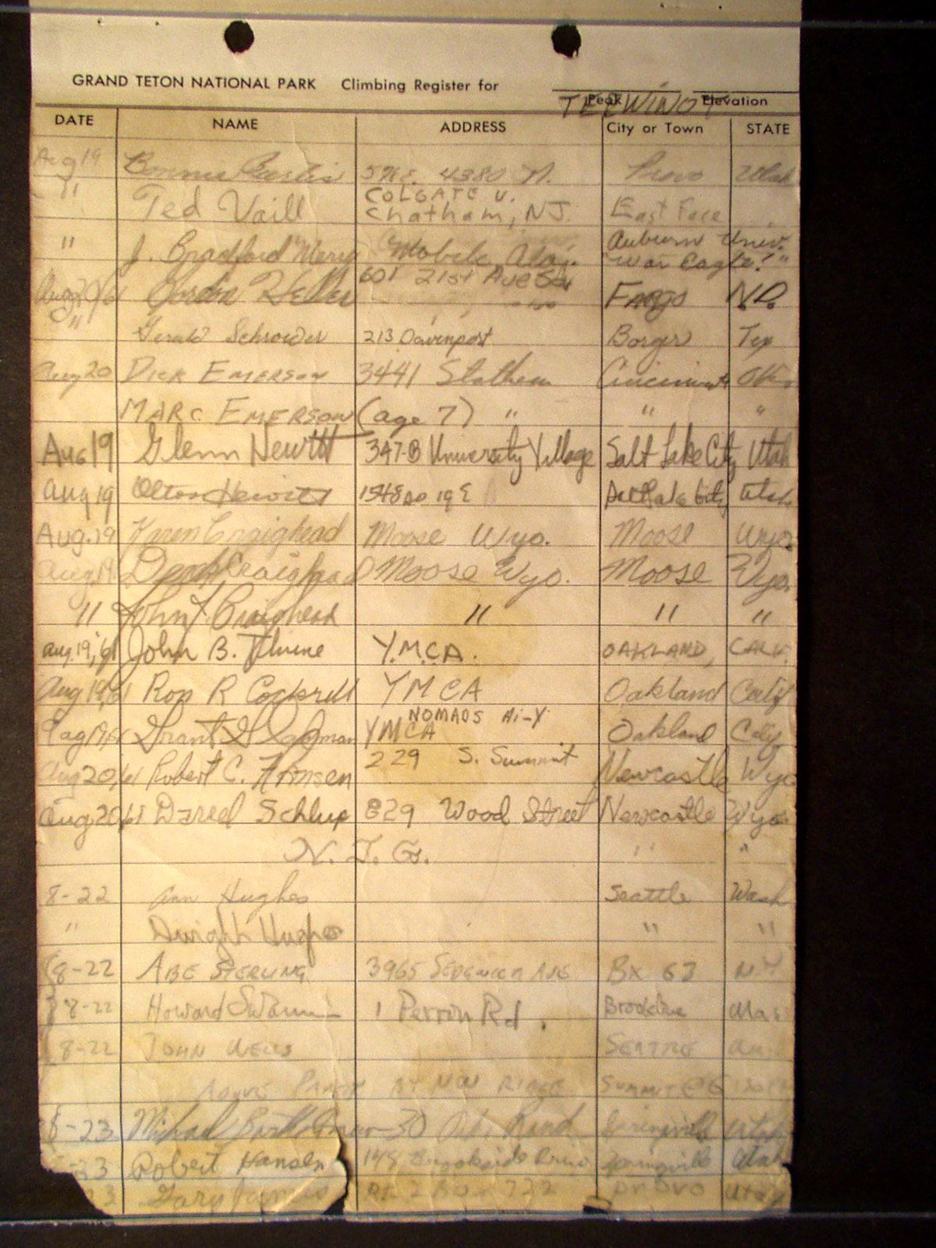 GRAND TETON NATIONAL PARK Climbing Register for TEEWINOT
Peak Elevation
DATE NAME ADDRESS City or Town STATE
Aug 19 Bonnie 4380 N. Provo Utah
" Ted Vaill COLGATE U. Chatham, NJ. East Face
" J. Bradford Mobile Ala. Auburn Univ. "War Eagle!"
Aug 20/61 Gordon Heller 601 21st Ave So Fargo N.D.
" Schroeder 213 Davenport Borger Tex
Aug 20 DICK EMERSON 3441 Cincinnati Ohio
MARC EMERSON (age 7) " " "
Aug 19 Glenn Hewitt 347-B University Village Salt Lake City Utah
Aug 19 Hewitt 19 E Salt Lake City Utah
Aug. 19 Karen Craighead Moose Wyo. Moose Wyo.
Aug 19 Derek Craighead Moose Wyo. Moose Wyo.
" John J. Craighead " " "
Aug. 19, '61 John B. Y.M.C.A. OAKLAND, CALIF.
Aug 19, 61 Ron R Cockrell YMCA Oakland Calif
Aug 19, 61 Grant YMCA NOMADS Hi-Y Oakland Calif
Aug 20, 61 Robert C. 229 S. Summit Newcastle Wyo
Aug 20, 61 Darrel Schlup 829 Wood Street Newcastle Wyo.
N. J. G. " "
8-22 Ann Hughes Seattle Wash
" Dwight Hughes " "
8-22 ABE STERLING 3965 SEDGWICK AVE BX 63 N.Y.
8-22 Howard 1 Perrin Rd. Brookline Mas
8-22 JOHN WELLS SEATTLE
ABOVE PARTY AT NW RIDGE SUMMIT @
8-23 30 Springville Utah
23 Robert Hansen 148 Brookside Drive Springville Utah
Gary James Rt. 2 Box 732 Provo Utah